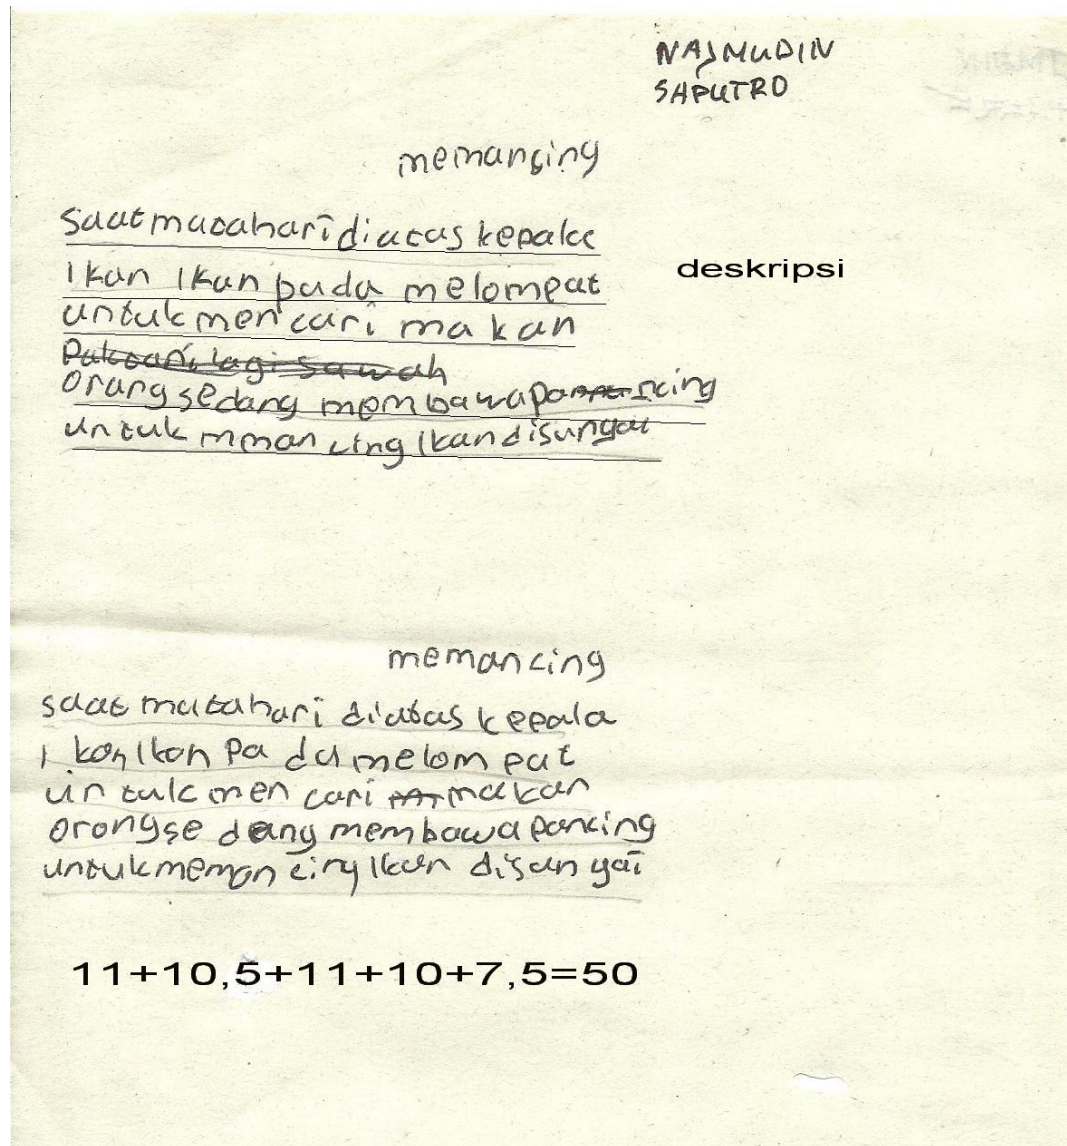 NAJMUDIN
SAPUTRO
memancing
saat matahari diatas kepala
deskripsi
Ikan Ikan pada melompat
untuk mencari makan
orang sedang membawa pancing
untuk mmancing Ikan disungai
memancing
saat matahari diatas kepala
Ikan Ikan pada melompat
untuk mencari makan
orang sedang membawa pancing
untuk memancing Ikan disungai
11+10,5+11+10+7,5=50